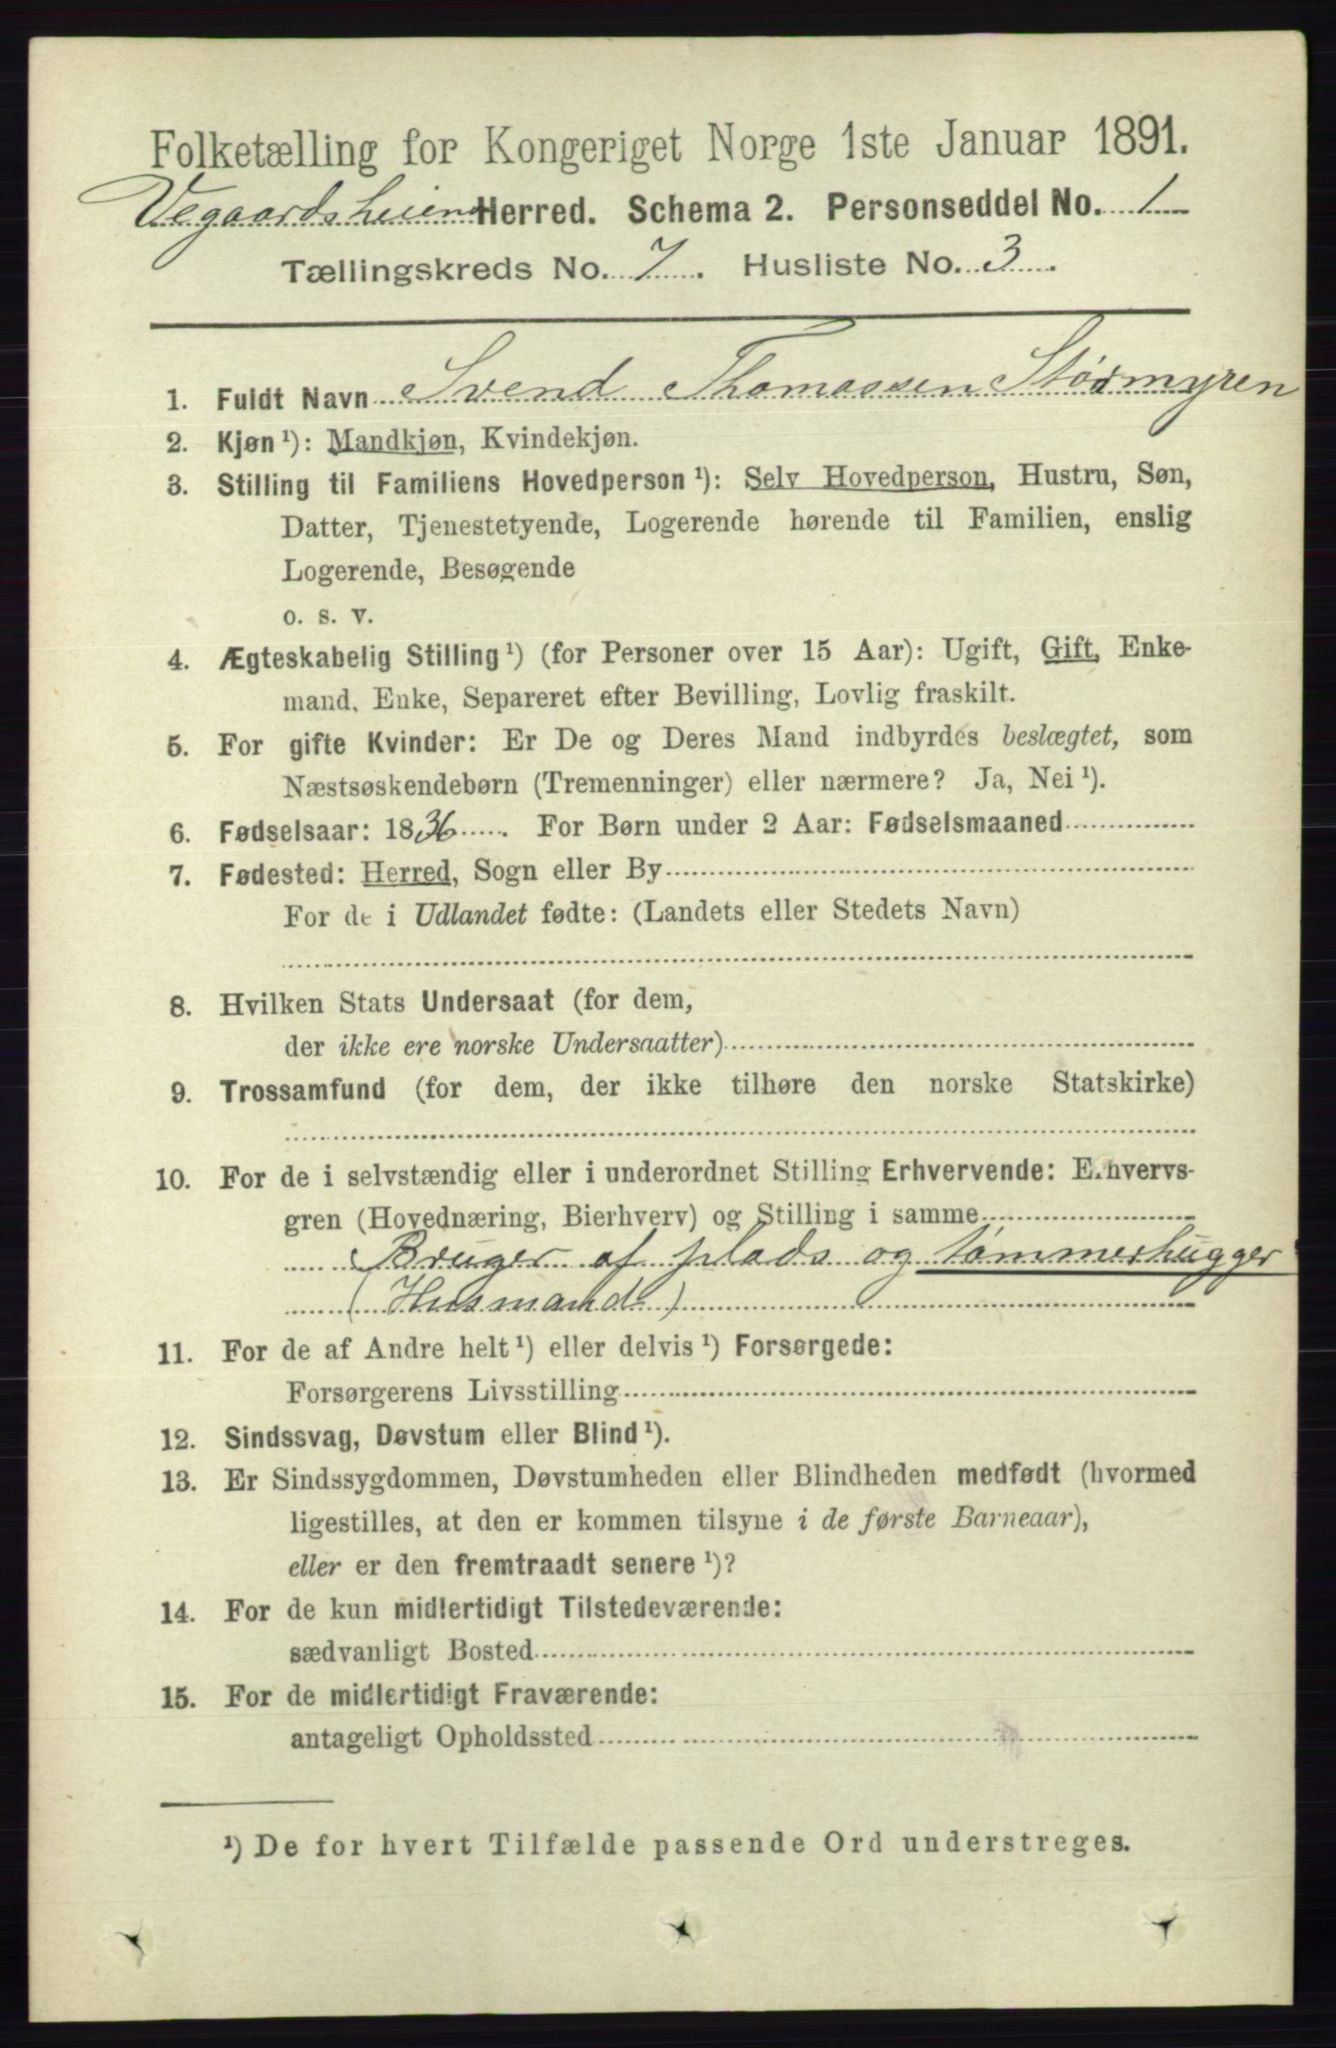 Folketælling for Kongeriget Norge 1ste Januar 1891.
Vegaardsheiens Herred. Schema 2. Personseddel No. 1
Tællingskreds No. 7. Husliste No. 3.
1. Fuldt Navn Svend Thomassen Størmyren
2. Kjøn ¹): Mandkjøn, Kvindekjøn.
3. Stilling til Familiens Hovedperson ¹): Selv Hovedperson, Hustru, Søn,
Datter, Tjenestetyende, Logerende hørende til Familien, enslig
Logerende, Besøgende
o. s. v.
4. Ægteskabelig Stilling ¹) (for Personer over 15 Aar): Ugift, Gift, Enke-
mand, Enke, Separeret efter Bevilling, Lovlig fraskilt.
5. For gifte Kvinder: Er De og Deres Mand indbyrdes beslægtet, som
Næstsøskendebørn (Tremenninger) eller nærmere? Ja, Nei ¹).
6. Fødselsaar: 1836. For Børn under 2 Aar: Fødselsmaaned
7. Fødested: Herred, Sogn eller By
For de i Udlandet fødte: (Landets eller Stedets Navn)
8. Hvilken Stats Undersaat (for dem,
der ikke ere norske Undersaatter)
9. Trossamfund (for dem, der ikke tilhøre den norske Statskirke)
10. For de i selvstændig eller i underordnet Stilling Erhvervende: Erhvervs-
gren (Hovednæring, Bierhverv) og Stilling i samme
Bruger af plads og tømmerhugger
(Husmand)
11. For de af Andre helt ¹) eller delvis ¹) Forsørgede:
Forsørgerens Livsstilling
12. Sindssvag, Døvstum eller Blind ¹).
13. Er Sindssygdommen, Døvstumheden eller Blindheden medfødt (hvormed
ligestilles, at den er kommen tilsyne i de første Barneaar),
eller er den fremtraadt senere ¹)?
14. For de kun midlertidigt Tilstedeværende:
sædvanligt Bosted
15. For de midlertidigt Fraværende:
antageligt Opholdssted
¹) De for hvert Tilfælde passende Ord understreges.